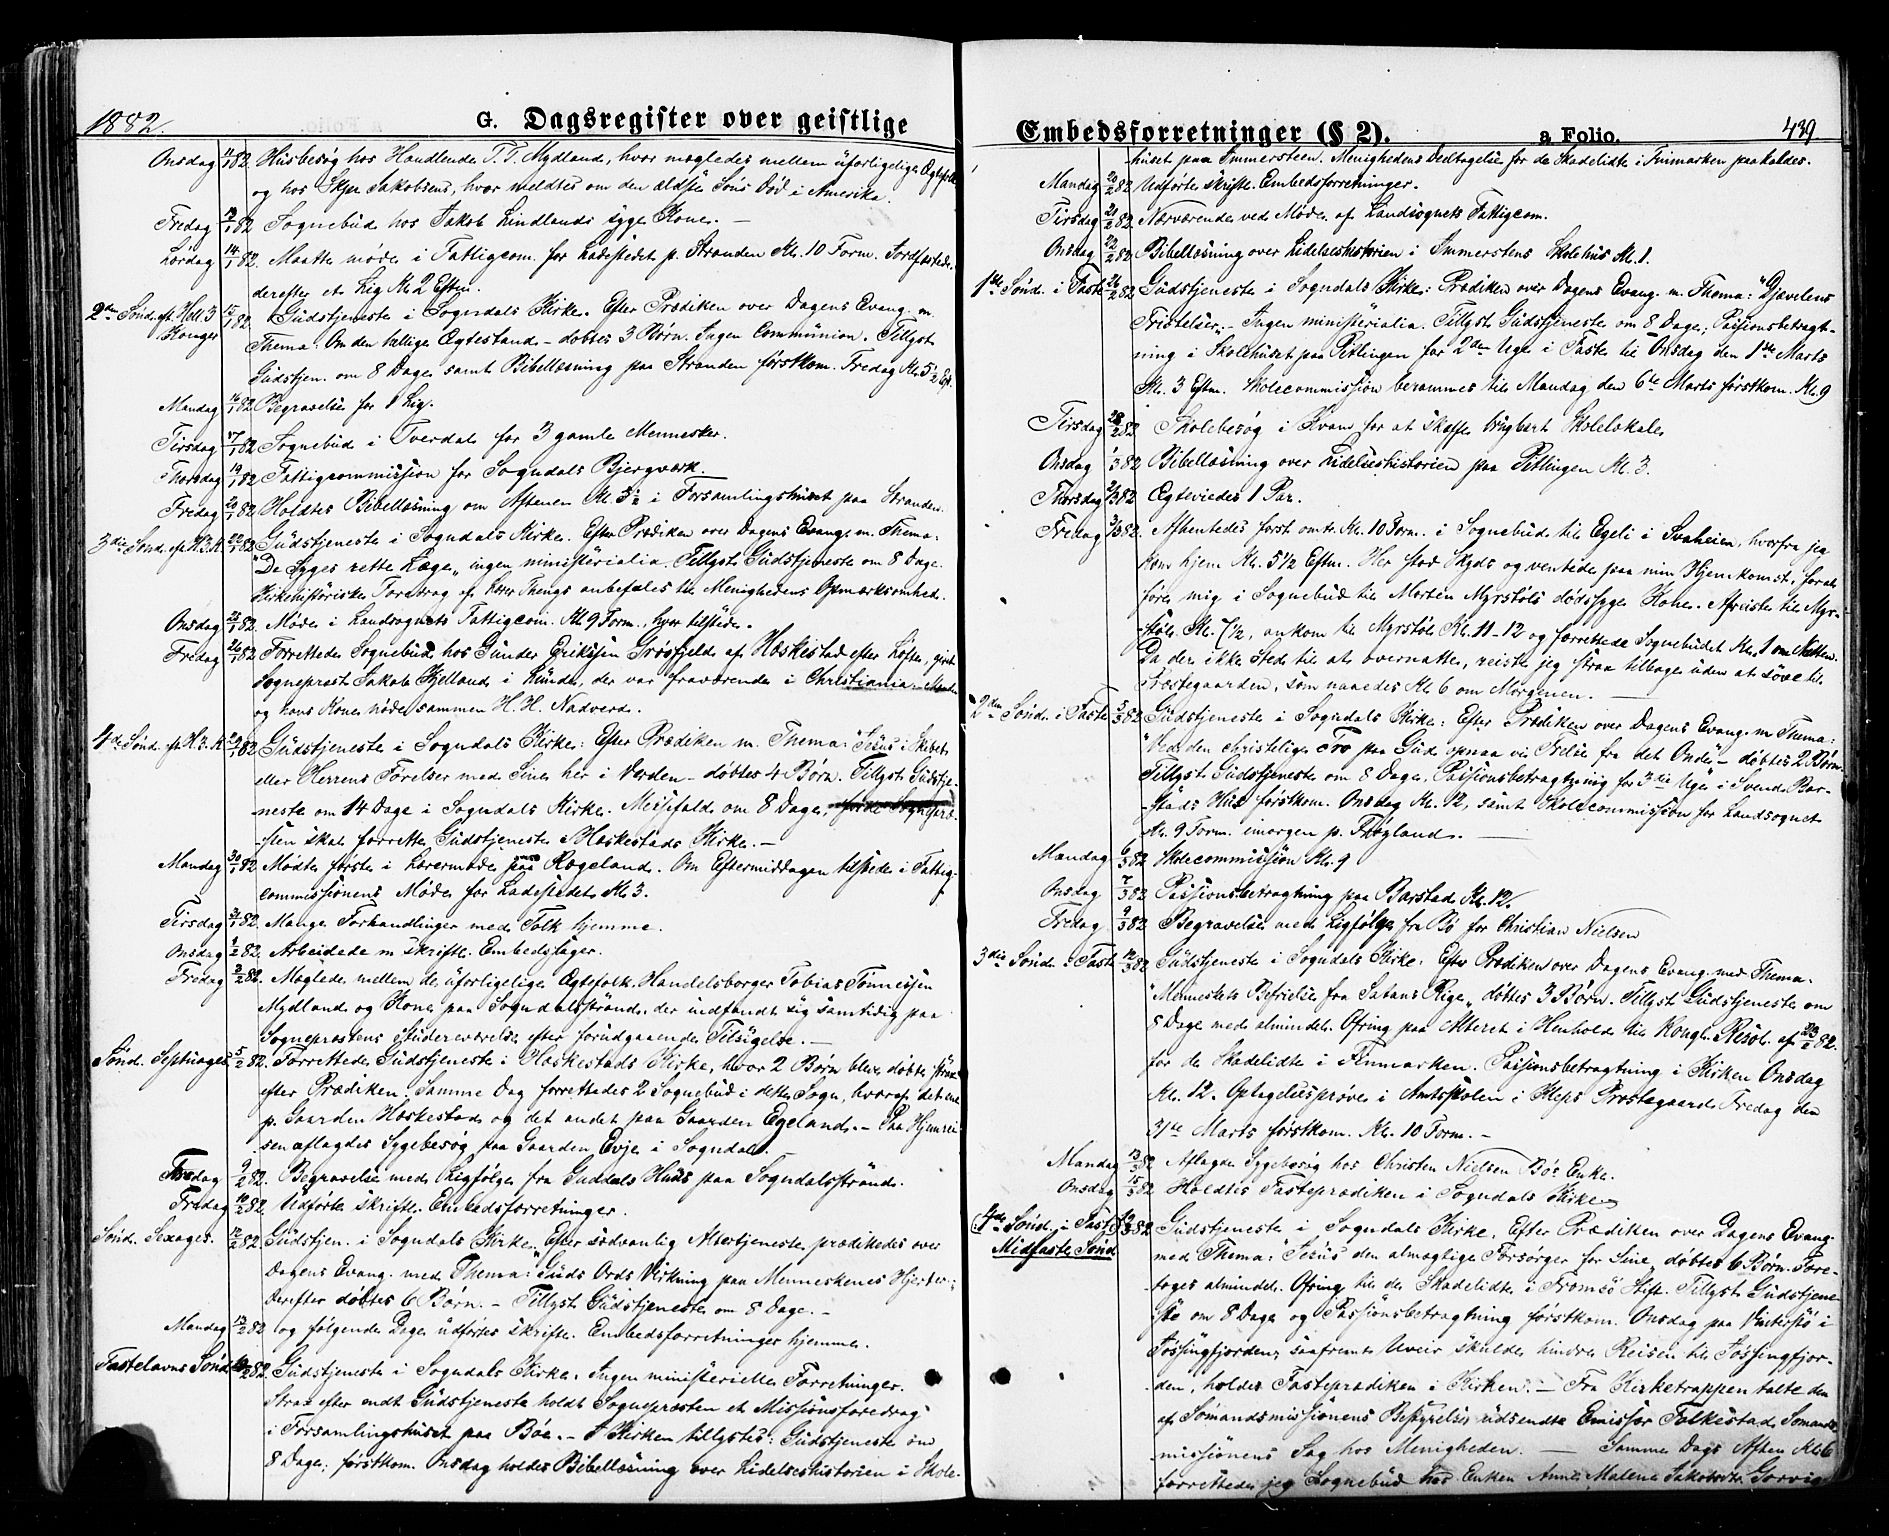 1882.
G. Dagsregister over geistlige
Onsdag 11/1 82. Husbesøg hos Handlende T. T. Mydland, hvor mægledes mellem uforligelige Ægtefolk
og hos Skpr Jakobsens, hvor meldtes om den ældste Søns Død i Amerika.
Fredag 13/1 82 Sognebud hos Jakob Lindlands syge Kone. –
Lørdag 14/1 82. Maatte møde i Fattigcom. for Ladestedet p. Stranden Kl. 10 Form. Jordfæstede
derefter et Lig Kl. 2 Eftm.
2den Sønd. eft. Hell 3 Konger 15/1 82. Gudstjeneste i Sogndals Kirke. Efter Prædiken over Dagens Evang. m.
Thema: Om den hellige Ægtestand – døbtes 3 Børn. Ingen Communion. Tillyst
Gudstjen. om 8 Dage samt Bibellæsning paa Stranden førstkom. Fredag Kl. 5½ Eft.
Mandag 16/1 82 Begravelse for 1 Lig.
Tirsdag 17/1 82 Sognebud i Tverdal for 3 gamle Mennesker.
Thorsdag 19/1 82 Fattigcommission for Sogndals Bjergværk.
Fredag 20/1 82 Holdtes Bibellæsning om Aftenen Kl. 5½ i Forsamlingshuset paa Stranden.
3die Sønd. eft. H. 3. K. 22/1 82 Gudstjeneste i Sogndals Kirke. Efter Prædiken over Dagens Evang. m. Thema:
"De Syges rette Læge" ingen ministerialia. Tillyst Gudstjeneste om 8 Dage.
Kirkehistoriske Foredrag af Lærer Thengs anbefales til Menighedens Opmærksomhed.
Onsdag 25/1 82. Møde i Landsognets Fattigcom. Kl. 9 Form., hvor tilstede.
Fredag 26/1 82 Forrettede Sognebud hos Gunder Eriksen Grøsfjeld af Hæskestad efter Løfte, givet
Sogneprest Jakob Kjelland i Lunde, der var fraværende i Christiania.
og hans Kone nøde sammen H. H. Nadverd.
4de Sønd. eft. H. 3. K. 29/1 82 Gudstjeneste i Sogndals Kirke: Efter Prædiken m. Thema: "Jesus i Skibet,
eller Herrens Førelser med Sine her i Verden – døbtes 4 Børn. Tillyst Gudstje-
neste om 14 Dage i Sogndals Kirke. Messefald om 8 Dage,
sten skal forrette Gudstjeneste i Hæskestads Kirke. –
Mandag 30/1 82. Mødte først i Lærermøde paa Rægeland. Om Eftermiddagen tilstede i Fattig-
commissionens Møde for Ladestedet Kl. 3.
Tirsdag 31/1 82. Mange Forhandlinger med Folk hjemme.
Onsdag 1/2 82. Arbeidede m skriftl. Embedssager.
Fredag 3/2 82. Mæglede mellem de uforligelige Ægtefolk Handelsborger Tobias Tønnessen
Mydland og Kone paa Sogndalsstrand, der indfandt sig samtidig paa
Sogneprestens Studereværelse efter forudgaaende Tilsigelse. –
Sønd. Septuages. 5/2 82. Forrettede Gudstjeneste i Hæskestads Kirke, hvor 2 Børn bleve døbte strax
efter Prædiken. Samme Dag forrettedes 2 Sognebud i dette Sogn, hvoraf det ene
p. Gaarden Hæskestad og det andet paa Gaarden Egeland. – Paa Hjemrei-
sen aflagdes Sygebesøg paa Gaarden Evje i Sogndal.
Torsdag 9/2 82. Begravelse med Ligfølge fra Guddals Huus paa Sogndalsstrand.
Fredag 10/2 82. Udførte skriftl. Embedsforretninger.
Sønd. Sexages. 12/2 82 Gudstjen. i Sogndals Kirke, Efter sædvanlig Altertjeneste prædikedes over
Dagens Evang. med Thema: Guds Ords Virkning paa Menneskenes Hjerter.
Derefter døbtes 6 Børn. – Tillyst Gudstjeneste om 8 Dage. –
Mandag 13/2 82 og følgende Dage udførtes skriftl. Embedsforretninger hjemme.
Fastelavns Sønd. 19/2 82 Gudstjeneste i Sogndals Kirke. Ingen ministerielle Forretninger.
Strax efter endt Gudstjeneste holdt Sognepræsten et Missionsforedrag
i Forsamlingshuset paa Bøe. – I Kirken tillystes: Gudstjeneste om
8 Dage; førstkom. Onsdag holdes Bibellæsning over Lidelseshistorien i Skole-
Embedsforretninger (§ 2).
a Folio.
489
huset paa Immersteen. Menighedens Deltagelse for de Skadelidte i Finmarken paakaldes.
Mandag 20/2 82 Udførte skriftl. Embedsforretninger.
Tirsdag 21/2 82 Nærværende ved Møde af Landsognets Fattigcom.
Onsdag 22/2 82 Bibellæsning over Lidelseshistorien i Immerstens Skolehus Kl. 1.
1ste Sønd. i Faste 26/2 82 Gudstjeneste i Sogndals Kirke: Prædiken over Dagens Evang. m. Thema: "Djævelens
Fristelser. – Ingen ministerialia. Tillyst Gudstjeneste om 8 Dage; Passionsbetragt-
ning i Skolehuset paa Fitlingen for 2den Uge i Faste til Onsdag den 1ste Marts
Kl. 3 Eftm. Skolecommission berammes til Mandag den 6te Marts førstkom. Kl. 9
Tirsdag 28/2 82 Skolebesøg i Kvam for at skaffe brugbart Skolelokale
Onsdag 1/3 82 Bibellæsning over Lidelseshistorien paa Fitlingen Kl. 3.
Thorsdag 2/3 82 Ægteviedes 1 Par.
Fredag 3/3 82. Afhentedes først omtr. Kl. 10 Form. i Sognebud til Egeli i Svaheien, hvorfra jeg
kom hjem Kl. 5½ Eftm. Her stod Skyds og ventede paa min Hjemkomst, for at
føre mig i Sognebud til Morten Myrstøls dødssyge Kone. Afreiste til Myr-
støl Kl. 7½, ankom til Myrstøl Kl. 11–12 og forrettede Sognebudet Kl. 1 om Natten.
Da der ikke Sted til at overnatte, reiste jeg strax tilbage uden at sove til
Præstegaarden, som naaedes Kl. 6 om Morgenen. –
2den Sønd. i Faste 5/3 82 Gudstjeneste i Sogndals Kirke: Efter Prædiken over Dagens Evang. m Thema:
"Ved den christelige Tro paa Gud opnaa vi Frelse fra det Onde" – døbtes 2 Børn.
Tillyst Gudstjeneste om 8 Dage, Passionsbetragtning for 3die Uge i Svend Bar-
stads Hus førstkom. Onsdag Kl. 12, samt Skolecommission for Landsognet
Kl. 9 Form. imorgen p. Frøyland. –
Mandag 6/3 82 Skolecommission Kl. 9
Onsdag 7/3 82 Passionsbetragtning paa Barstad Kl. 12.
Fredag 9/3 82 Begravelse med Ligfølge fra Bø for Christian Nielsen
3die Sønd. i Faste 12/3 82 Gudstjeneste i Sogndals Kirke: Efter Prædiken over Dagens Evang. med Thema.
"Menneskets Befrielse fra Satans Rige" døbtes 3 Børn. Tillyst Gudstjeneste om
8 Dage med almindel. Ofring paa Alteret i Henhold til Kongl. Resol. af 23/2 82.
for de Skadelidte i Finmarken. Passionsbetragtning i Kirken Onsdag
Kl. 12. Optagelsesprøve i Amtsskolen i Kleps Præstegaard Fredag den
31te Marts førstkom. Kl. 10 Form. –
Mandag 13/3 82 Aflagde Sygebesøg hos Christen Nielsen Bøs Enke.
Onsdag 15/3 82 Holdtes Fasteprædiken i Sogndals Kirke
4de Sønd. i Faste Midfaste Sønd 19/3 82 Gudstjeneste i Sogndals Kirke. Efter Prædiken over Dagens Evang.
med Thema: "Jesus den almægtige Forsørger for Sine" døbtes 6 Børn. Fore-
toges almindel. Ofring til de Skadelidte i Tromsø Stift. Tillyst Gudstjene-
ste om 8 Dage og Passionsbetragtning førstkom. Onsdag paa Vinterstø i
Jøssingfjorden, saafremt Uveir skulde hindre Reisen til Jøssingfjor-
den, holdes Fasteprædiken i Kirken. – Fra Kirketrappen talte den
af Sømandsmissionens Bestyrelse udsendte Emissær Folkestad Sømands-
missionens Sag hos Menigheden. – Samme Dags Aften Kl. 6
forrettede jeg Sognebud hos Enken Anne Malene Jakobsdtr. Gorvig